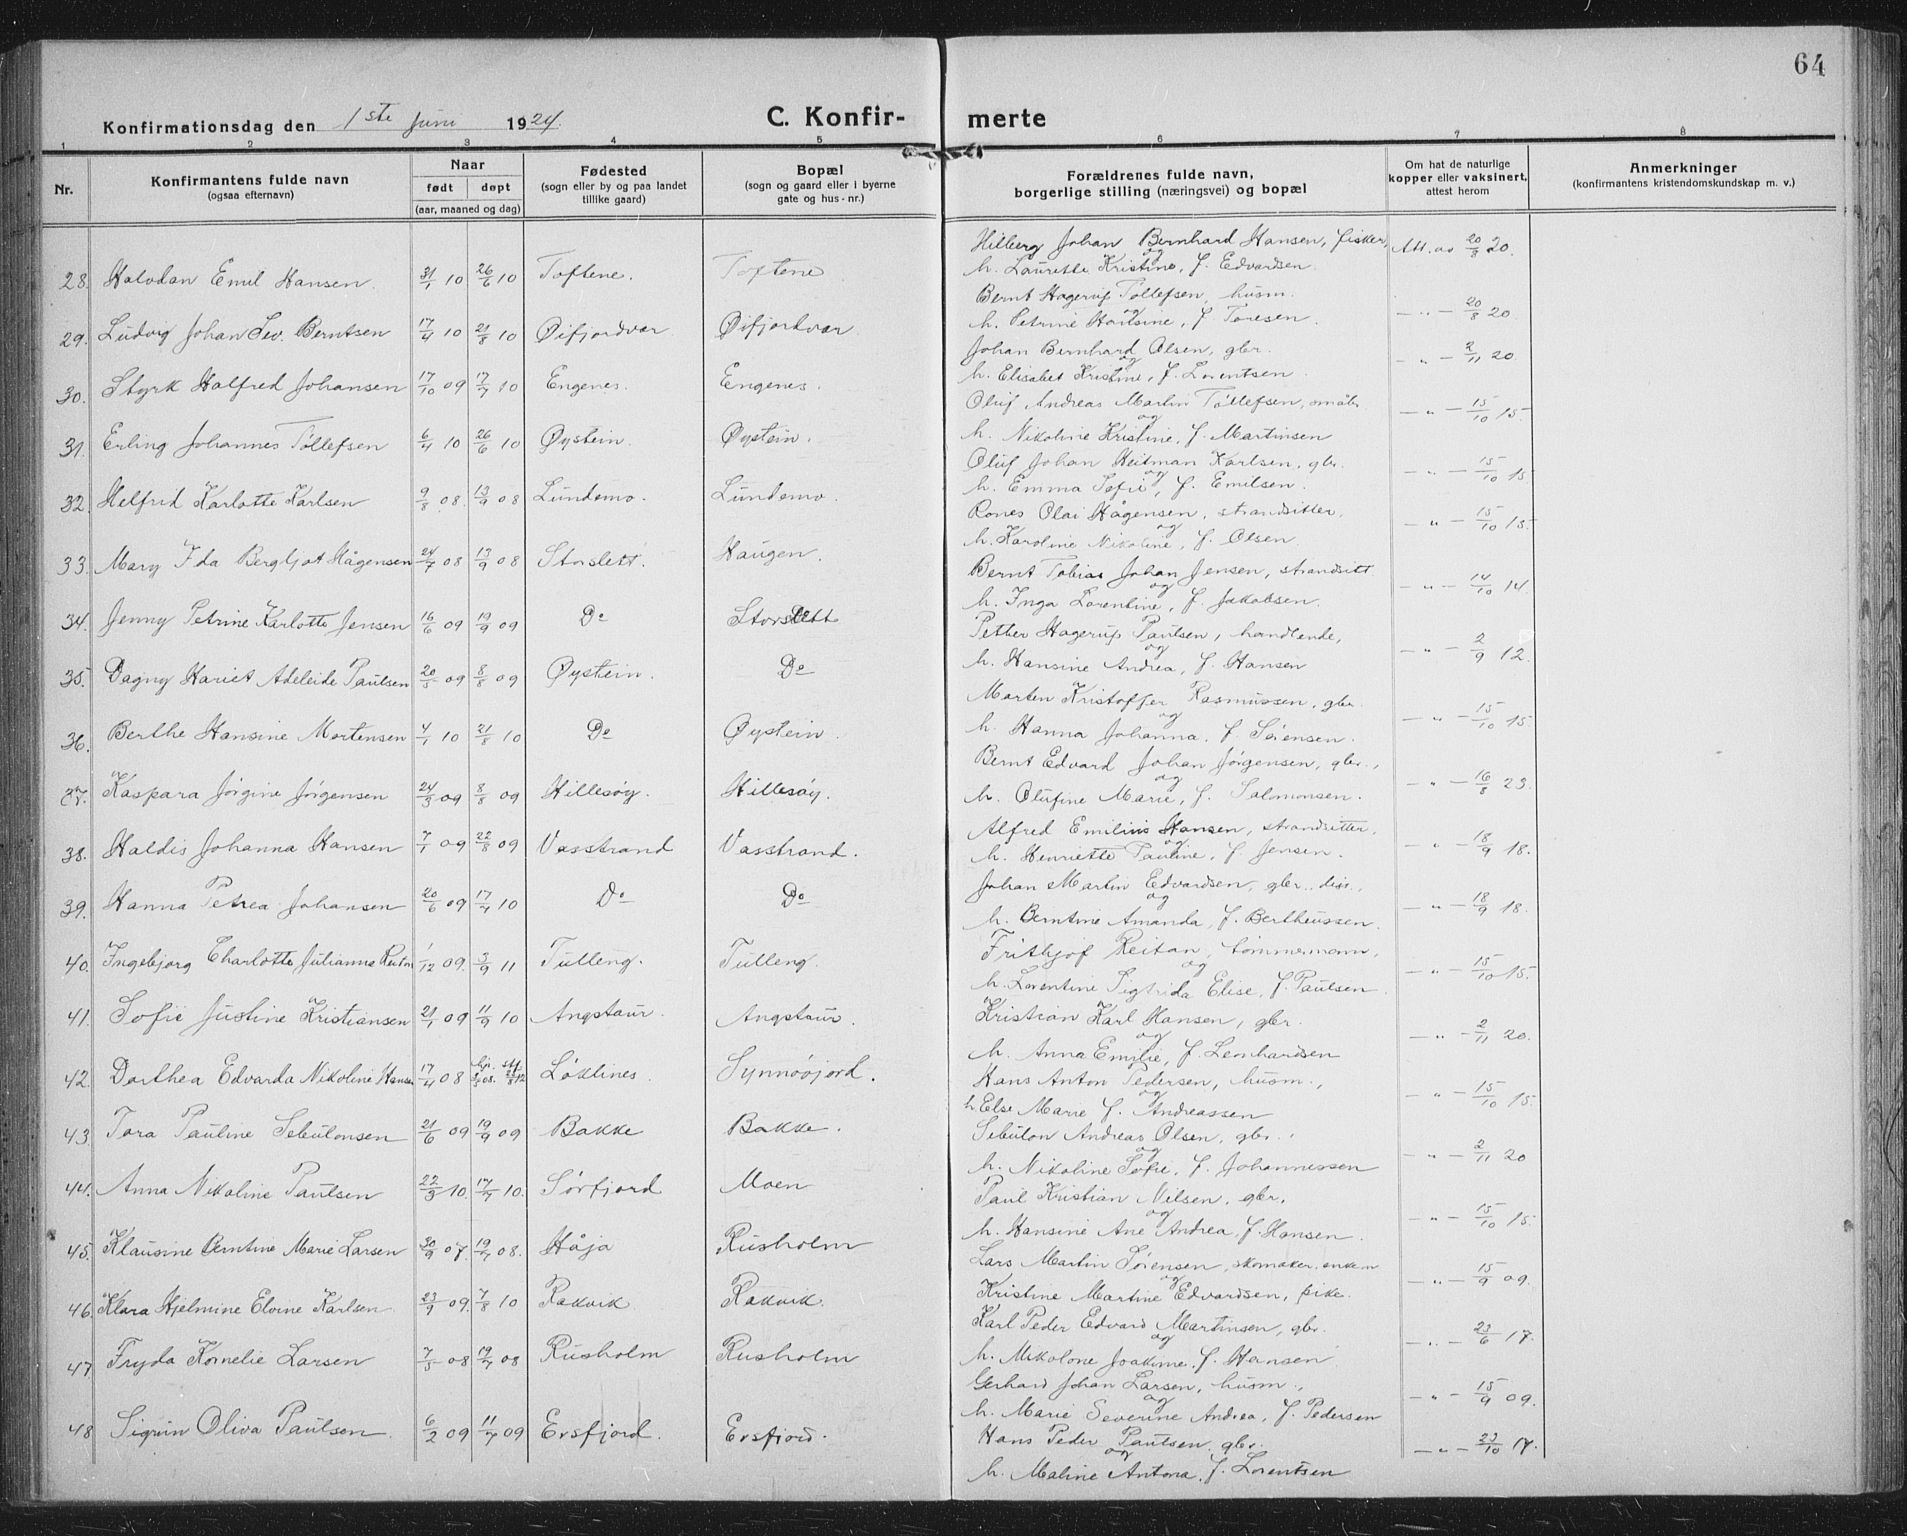 64
Konfirmationsdag den 1ste Juni 1924.
C. Konfir- merte
1 2 3 4 5 6 7 8
Nr. Konfirmantens fulde navn (ogsaa efternavn) Naar født døpt (aar, maaned og dag) Fødested (sogn eller by og paa landet tillike gaard) Bopæl (sogn og gaard eller i byerne gate og hus-nr.) Forældrenes fulde navn, borgerlige stilling (næringsvei) og bopæl Om hat de naturlige kopper eller vaksinert, attest herom Anmerkninger (konfirmantens kristendomskundskap m. v.)
28. Halvdan Emil Hansen. 31/1 10 26/6 10 Toftene. Toftene Hilberg Johan Bernhard Hansen, fisker, og Att. av 20/8 20.
h. Laurette Kristine, f. Edvardsen
29. Ludvig Johan Sev. Berntsen 17/4 10 21/8 10 Øifjordvar Øifjordvar Bernt Hagerup Tollefsen, husm. og — " — 20/8 20
h. Petrine Hansine, f. Toresen
30. Styrk Halfred Johansen 17/10 09 17/7 10 Engenes. Engenes. Johan Bernhard Olsen, gbr. og — " — 2/11 20
h. Elisabet Kristine, f. Lorentsen
31. Erling Johannes Tøllefsen 6/4 10 26/6 10 Øystein. Øystein. Oluf Andreas Martin Tøllefsen, småbr. og — " — 15/10 15.
h. Nikoline Kristine, f. Martinsen
32. Helfrid Karlotte Karlsen 9/8 08. 13/9 08 Lundemo. Lundemo. Oluf Johan Heitman Karlsen, gbr. og — " — 15/10 15
h. Emma Sofie, f. Emilsen.
33. Mary Ida Bergljot Hågensen 24/7 08 13/9 08 Storslett. Haugen. Rones Olai Hågensen, strandsitter, og — " — 15/10 15
h. Karoline Nikoline, f. Olsen
34. Jenny Petrine Karlotte Jensen 16/6 09 19/9 09 Do Storslett Bernt Tobias Johan Jensen, strandsitt. og — " — 14/10 14.
h. Inga Lorentine, f. Jakobsen.
35. Dagny Hariet Adeleide Paulsen 20/5 09 8/8 09 Øystein. Do Petter Hagerup Paulsen, handlende, og — " — 2/9 12.
h. Hansine Andrea, f. Hansen
36. Berthe Hansine Mortensen 4/1 10 21/8 10 Do Øystein. Morten Kristoffer Rasmussen, gbr. og — " — 15/10 15
h. Hanna Johanna, f. Sørensen.
37. Kaspara Jørgine Jørgensen 24/3 09 8/8 09 Hillesøy. Hillesøy. Bernt Edvard Johan Jørgensen, gbr., og — " — 16/8 23.
h. Olufine Marie, f. Salomonsen.
38. Haldis Johanna Hansen 7/1 09 22/8 09 Vasstrand Vasstrand. Alfred Emilius Hansen, strandsitter, og — " — 18/9 18.
h. Henriette Pauline, f. Jensen.
39. Hanna Petrea Johansen 20/6 09 17/7 10 Do Do Johan Martin Edvardsen, gbr. diss., og — " — 18/9 18.
h. Berntine Amanda, f. Bertheussen.
40. Ingebjorg Charlotte Julianna Reitan 1/12 09. 3/9 11 Tulleng. Tulleng. Frithjof Reitan, tømmermann, og — " — 15/10 15.
h. Lorentine Sigfrida Elise, f. Paulsen
41. Sofie Justine Kristiansen 21/1 09 11/9 10 Angstaur. Angstaur. Kristian Karl Hansen, gbr. og — " — 2/11 20.
h. Anna Emilie, f. Lenhardsen
42. Dorthea Edvarda Nikoline Hansen 17/4 08 Løklines. Synnøjord. Hans Anton Pedersen, husm., og — " — 15/10 15.
h. Else Marie f. Andreassen
43. Tora Pauline Sebulonsen 21/6 09 19/9 09 Bakke Bakke. Sebulon Andreas Olsen, gbr., og — " — 2/11 20
h. Nikoline Sofie, f. Johannessen
44. Anna Nikoline Paulsen 22/3 10. 17/7 10. Sørfjord Moen Paul Kristian Nilsen, gbr. og — " — 15/10 15.
h. Hansine Ane Andrea, f. Hansen.
45. Klausine Berntine Marie Larsen 30/9 07. 19/7 08. Håja Rusholm Lars Martin Sørensen, skomaker, enkem og — " — 15/9 09.
Kristine Martine Edvardsen, pike.
46. Klara Hjelmine Elvine Karlsen 23/9 09. 7/8 10 Rakvik Rakvik. Karl Peder Edvard Martinsen, gbr. og — " — 23/6 17.
h. Mikolone Joakime, f. Hansen
47 Fryda Kornelie Larsen 7/5 08 19/7 08 Rusholm Rusholm Gerhard Johan Larsen, husm., og — " — 15/9 09.
h. Marie Severine Andrea, f. Pedersen
48 Sigrun Oliva Paulsen. 6/2 09 11/7 09 Ersfjord. Ersfjord. Hans Peder Paulsen, gbr. og — " — 23/10 17.
h. Maline Antona, f. Lorentsen